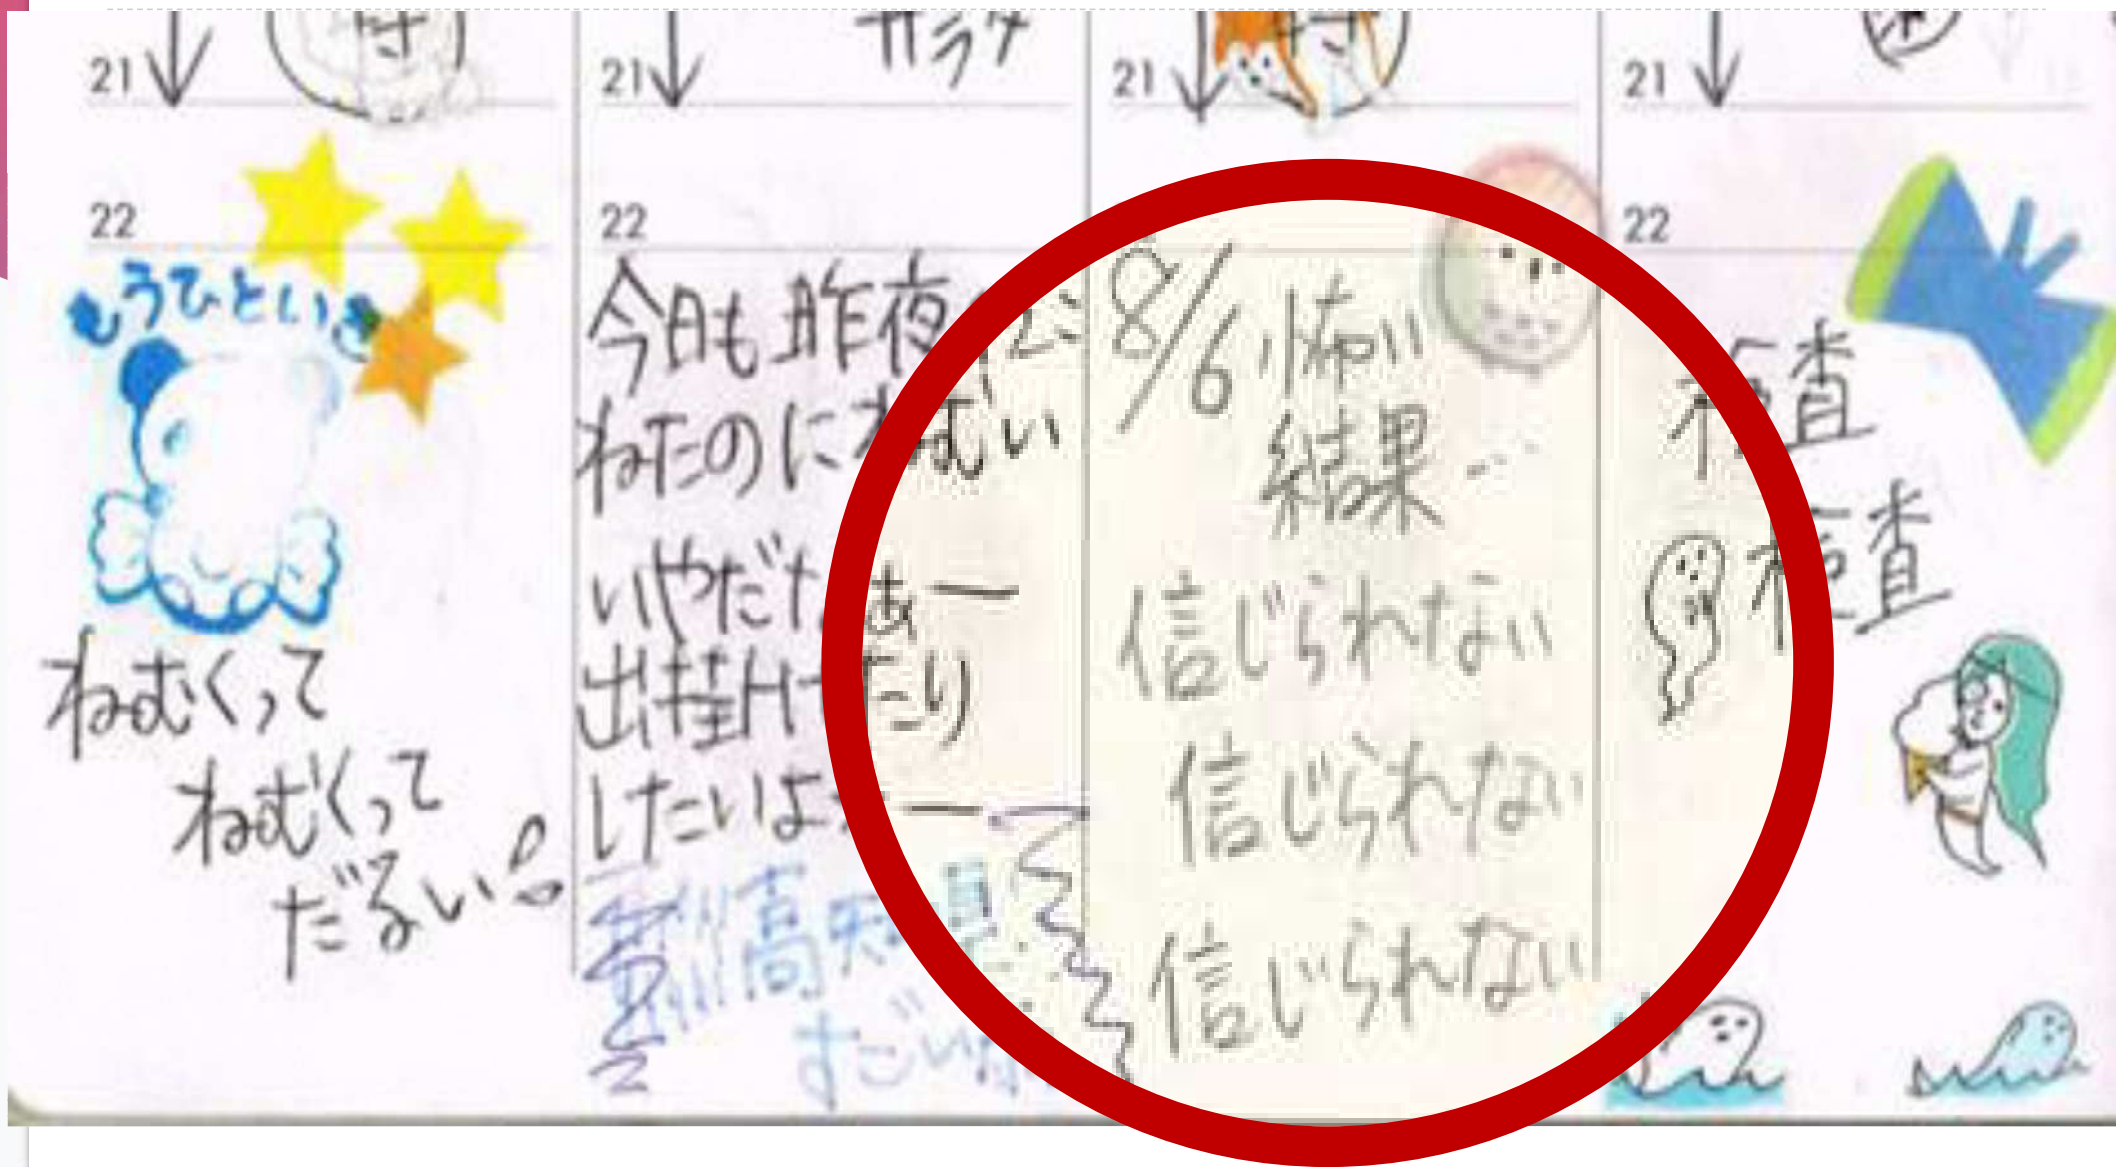 21
22
もうひといき
ねむくって
ねむくって
だるい
21
サラダ
22
今日も昨夜
ねたのにねむい
いやだなあー
出掛けたり
したいよー
高知
すごい
21
22
8/6 怖い
結果…
信じられない
信じられない
信じられない
21
22
検査
検査